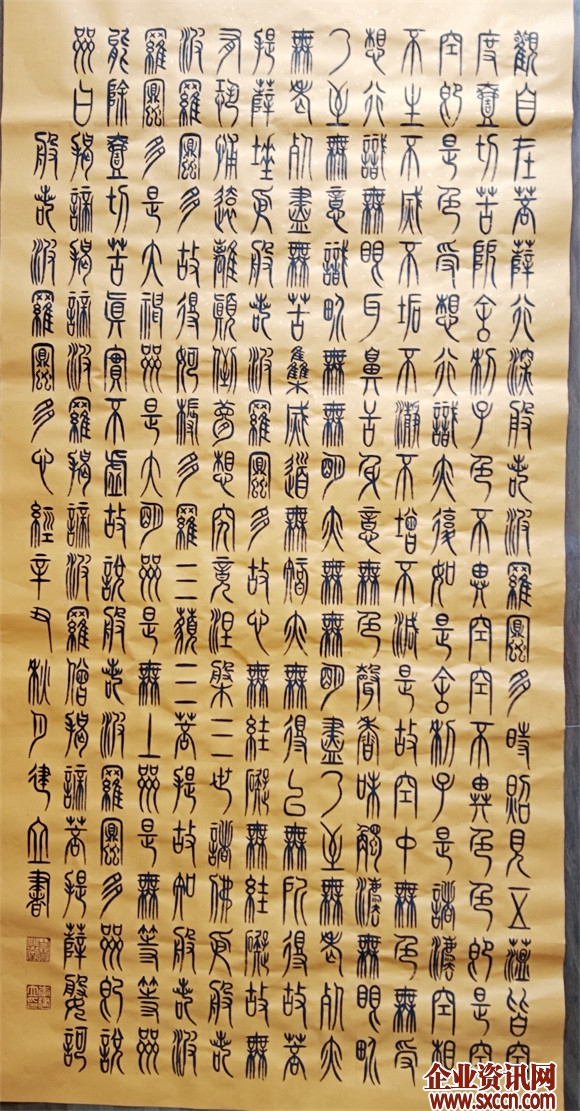 觀自在菩薩行深般若波羅蜜多時照見五蘊皆空
度壹切苦厄舍利子色不異空空不異色色即是空
空即是色受想行識亦復如是舍利子是諸法空相
不生不滅不垢不淨不增不減是故空中無色無受
想行識無眼耳鼻舌身意無色聲香味觸法無眼界
乃至無意識界無無明亦無無明盡乃至無老死亦
無老死盡無苦集滅道無智亦無得以無所得故菩
提薩埵依般若波羅蜜多故心無罣礙無罣礙故無
有恐怖遠離顛倒夢想究竟涅槃三世諸佛依般若
波羅蜜多故得阿耨多羅三藐三菩提故知般若波
羅蜜多是大神咒是大明咒是無上咒是無等等咒
能除壹切苦真實不虛故說般若波羅蜜多咒即說
咒曰揭諦揭諦波羅揭諦波羅僧揭諦菩提薩婆訶
般若波羅蜜多心經辛丑秋月建立書
企业资讯网
www.sxccn.com